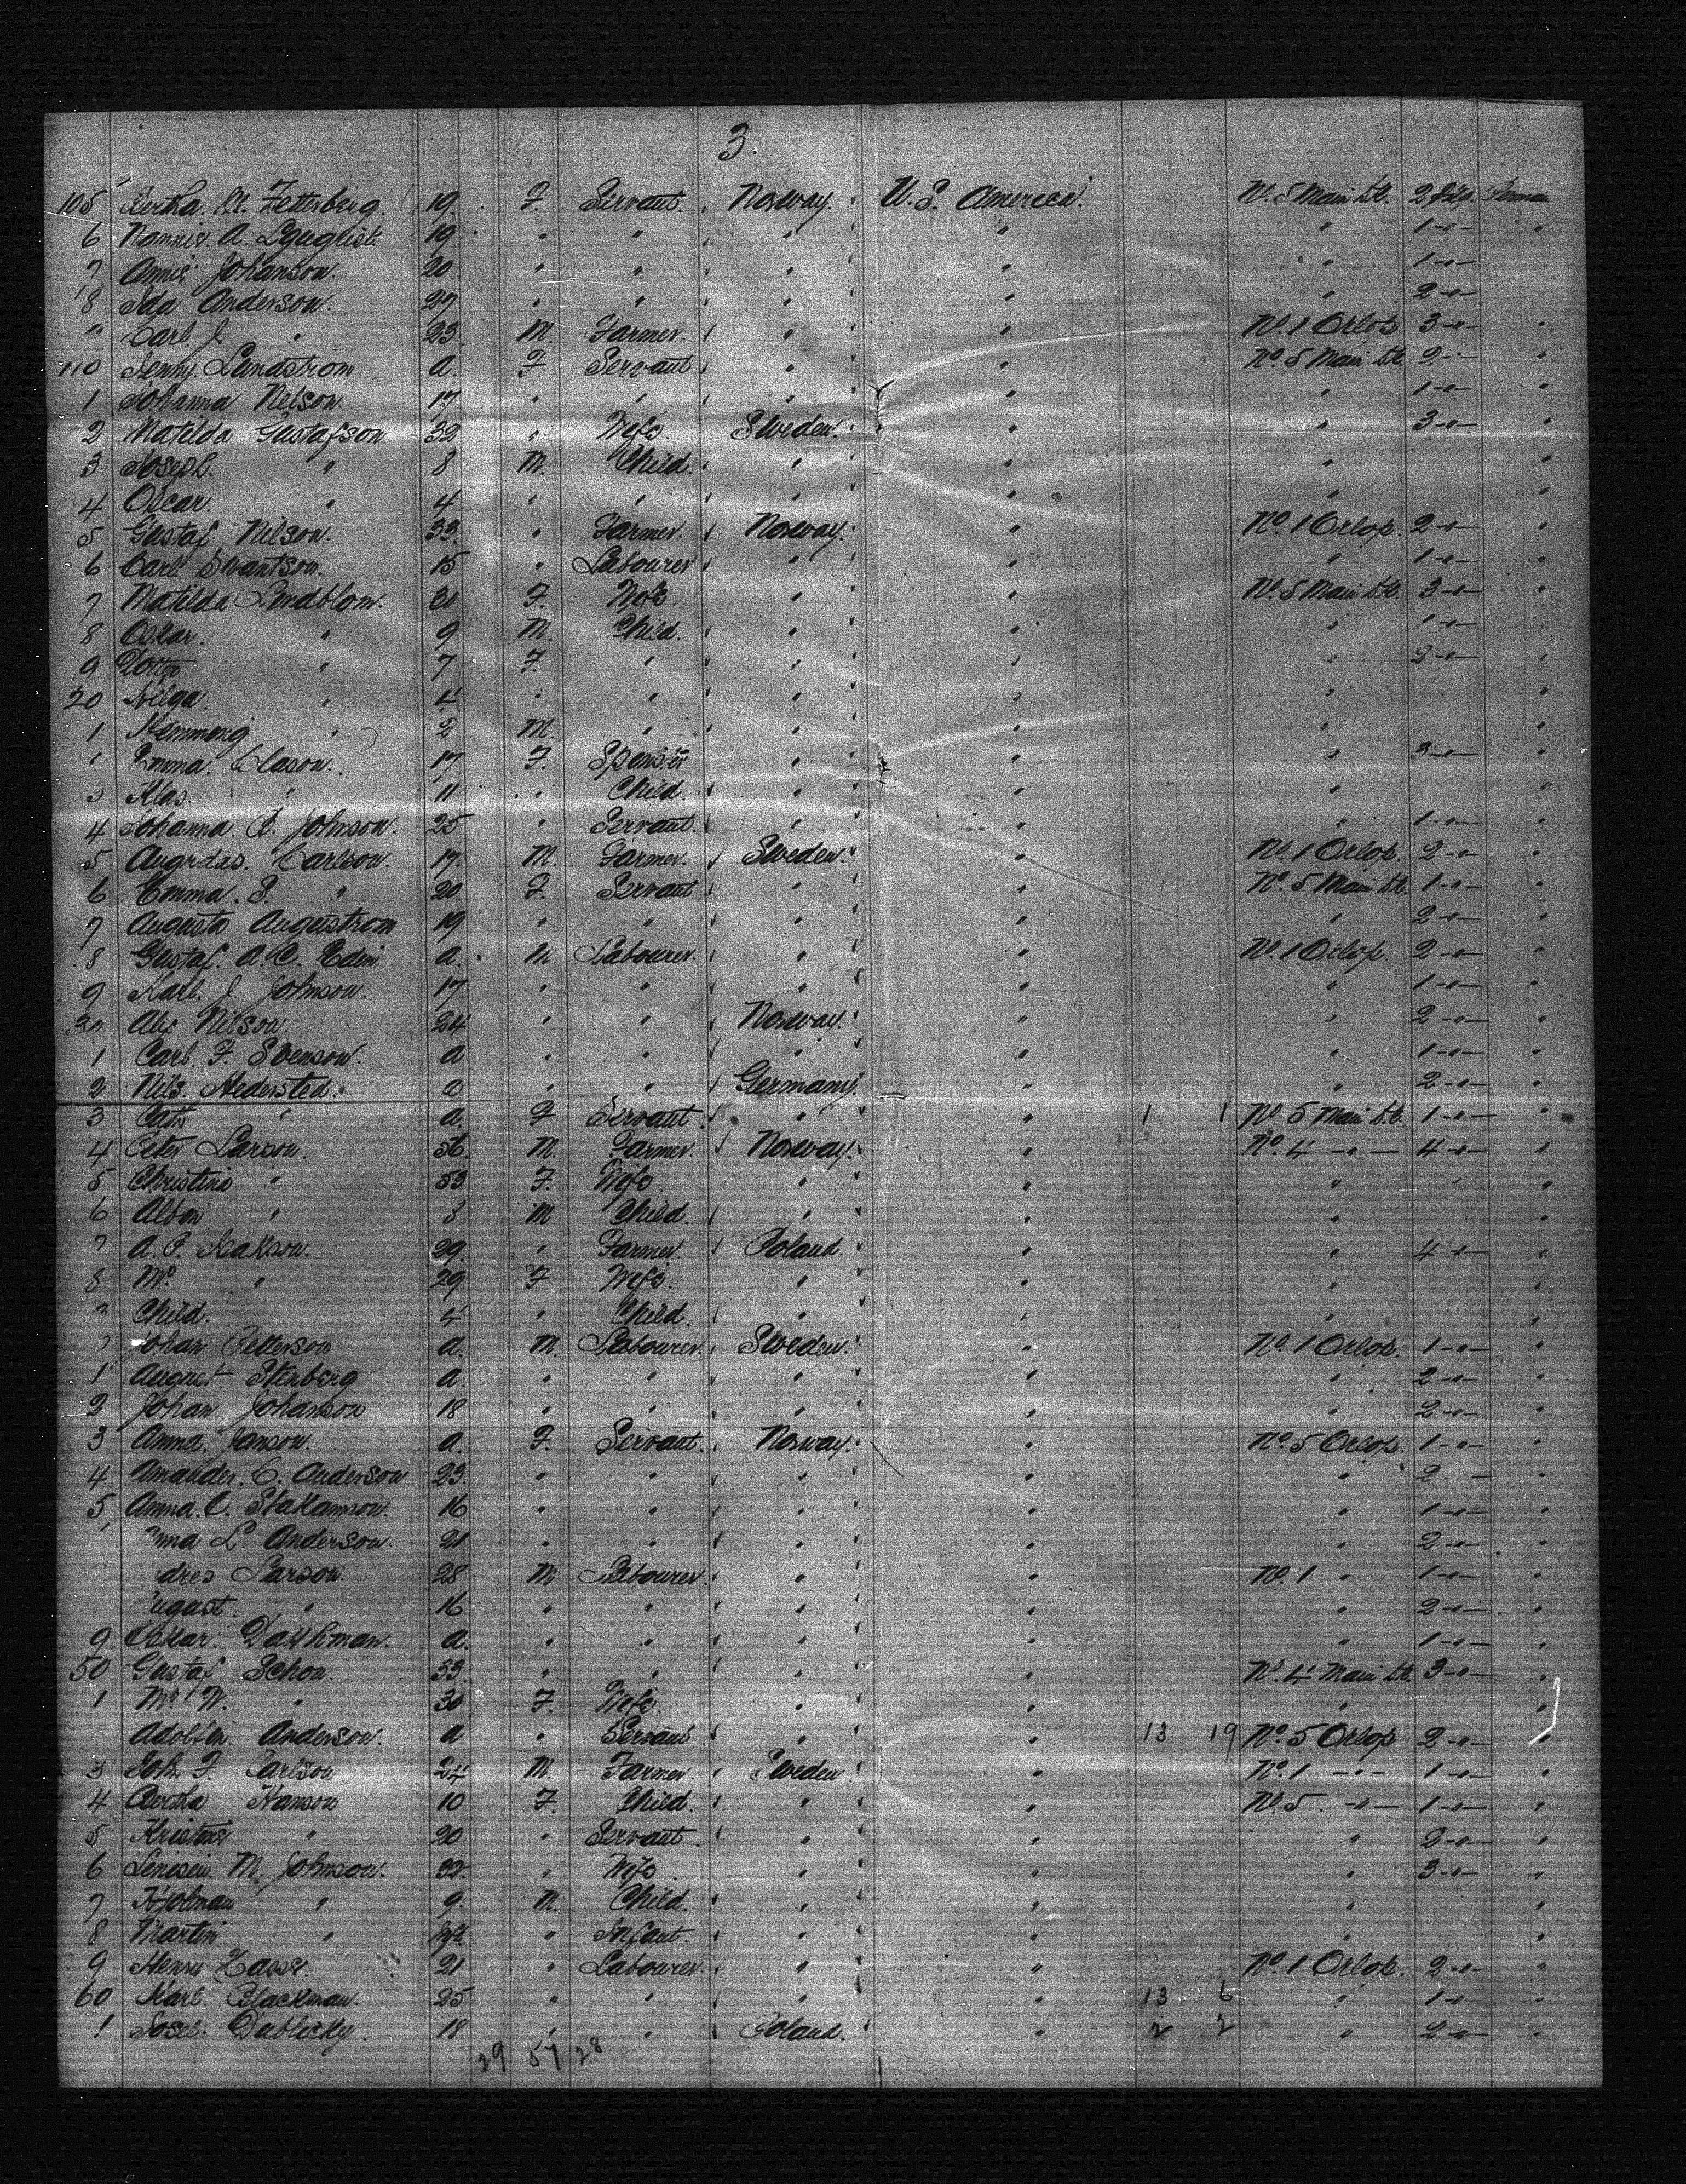 3.
105 Bertha. M. Zetterberg. 19. F. Servant. Norway. U.S. America. No. 5 Main Dk. 2 pkgs.
6 Nannie. A. 19 " " " " " 1 -"- "
7 Annie Johanson. 20 " " " " " 1 -"-
8 Ida Anderson. 27 " " " " " 2 -"-
" Carl J. " 23 M. Farmer. " " No. 1 Orlop 3 -"- "
110 Jenny Lundstrom a. F Servant " " No. 5 Main Dk. 2 -"- "
1 Johanna Nelson. 17 " " " " " 1 -"- "
2 Matilda Gustafson 32 " Wife. Sweden. " " 3 -"- "
3 Joseph. " 8 M. Child. " " " "
4 Oscar. " 4 " " " " " "
5 Gustaf Nilson. 33. " Farmer. Norway. " No. 1 Orlop. 2 -"- "
6 Carl Swantson. 15 " Labourer " " " 1 -"- "
7 Matilda Lindblom. F. Wife " " No. 5 Main Dk. 3 -"- "
8 Oskar. " 9 M. Child. " " " 1 -"- "
9 " 7 F. " " " " 2 -"- "
20 Helga. " 4 " " " " " "
1 Hemming " 2 M. " " " " "
Emma. Clason. 17 F. " " " 3 -"- "
3 Klas. " 11 " Child. " " "
4 Johanna. B. Johnson. 25 " Servant. " " " 1 -"- "
5 Carlson. 17. M. Farmer. Sweden. " No. 1 Orlop. 2 -"- "
6 Emma. S. " 20 F. Servant " " No. 5 Main Dk. 1 -"- "
7 Augusta Augustrom 19 " " " " " 2 -"- "
8 Gustaf. A. C. Edin a. M Labourer. " " No. 1 Orlop. 2 -"- "
9 Karl. J. Johnson. 17 " " " " " 1 -"- "
30 Nilson. 24 " " Norway. " " 2 -"- "
1 Carl. F. Svenson. a " " " " " 1 -"- "
2 Nils. Hedersted. a " " Germany. " " 2 -"- "
3 " a. F Servant. " " 1 1 No. 5 Main Dk. 1 -"- "
4 Peter Larson. 56. M. Farmer. Norway. " No. 4 -"- 4 -"- "
5 Christina " 53 F. Wife. " " " " "
6 Albin " 3 M Child. " " " "
7 A. P. 29. " Farmer. Poland. " " 4 -"- "
8 Mrs " 29 F Wife. " " " "
9 Child. 4 " Child. " " " "
Johan Petterson a. M. Labourer. Sweden. " No. 1 Orlop. 1 -"- "
1 August Stenberg a. " " " " " 2 -"- "
2 Johan Johanson 18 " " " " " 2 -"- "
3 Anna. Janson. a. F. Servant. Norway. " No. 5 Orlop. 1 -"- "
4 Amander. C. Anderson 23. " " " " " 2 -"- "
5 Anna. C. 16 " " " " " 1 -"- "
L. Anderson. 21 " " " " " 2 -"- "
Larson. 28 M Labourer. " " No. 1 " 1 -"- "
" 16 " " " " " 2 -"- "
9 Oskar. a. " " " " " 1 -"- "
50 Gustaf Schon. 33. " " " " No. 4 Main Dk. 3 -"- "
1 Mrs W. " 30 F. Wife. " " " "
Adolfin Anderson. a " Servant " " 13 19 No. 5 Orlop 2 -"- "
3 John F. Carlson. 24 M. Farmer Sweden " No. 1 -"- 1 -"- "
4 Bertha Hanson 10 F. Child. " " No. 5 -"- 1 -"- "
5 Kristine " 20 " Servant " " " 2 -"- "
6 M. Johnson. 32. " Wife " " " 3 -"- "
7 Hjolman " 9. M. Child. " " " "
8 Martin " " Infant. " " " "
9 21 " Labourer. " " No. 1 Orlop. 2 -"- "
60 Karl. Blackman. 25 " " " " 13 6 " 1 -"- "
1 Josef. 18 " " Poland. " 2 2 " 2 -"- "
29 57 28